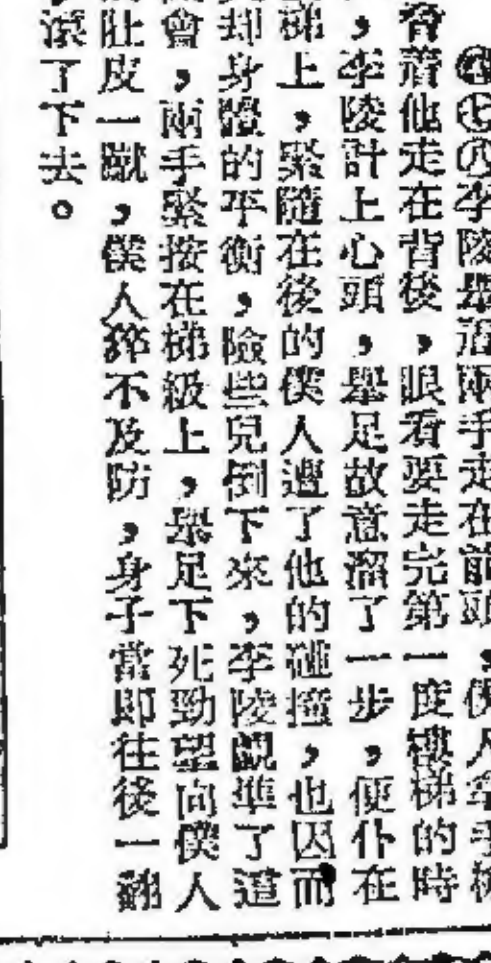 ④⑦⑧李陵舉着兩手走在前頭，僕人拿手槍
脅着他走在背後，眼看要走完第一度樓梯的時
，李陵計上心頭，舉足故意溜了一步，便仆在
梯上，緊隨在後的僕人遭了他的碰撞，也因而
却身體的平衡，險些兒倒下來，李陵覷準了這
會，兩手緊按在梯級上，舉足下死勁望向僕人
肚皮一蹴，僕人猝不及防，身子當即往後一翻
滾了下去。